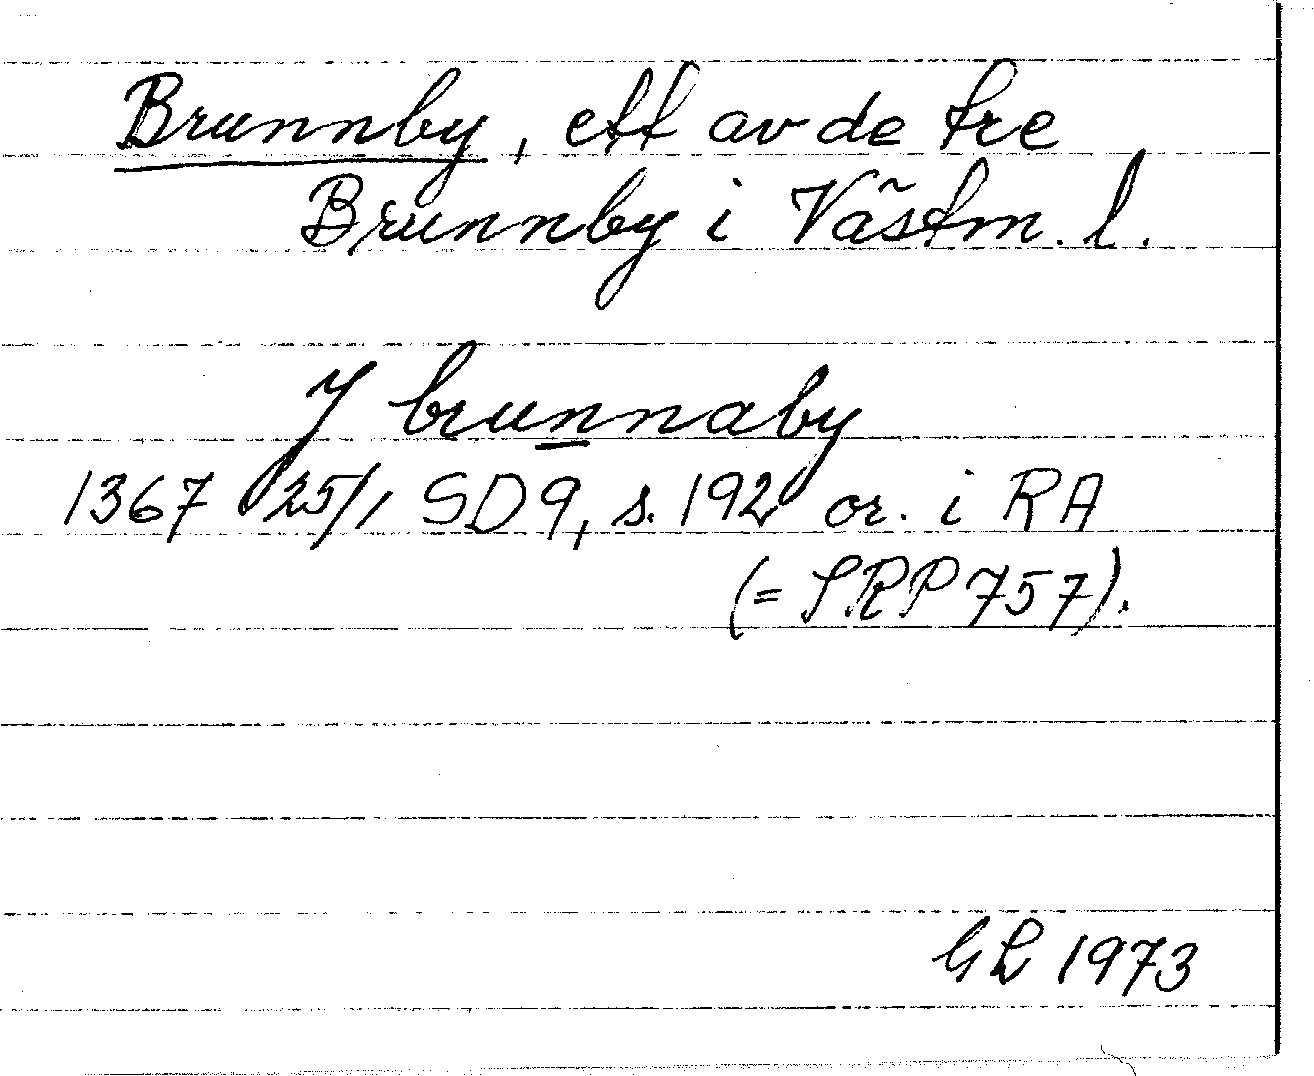 Brunnby, ett av de tre
Brunnby i Västm. l.
J brunnaby
1367 25/1 SD9, s. 192 or. i RA
(= SRP 757).
GL 1973